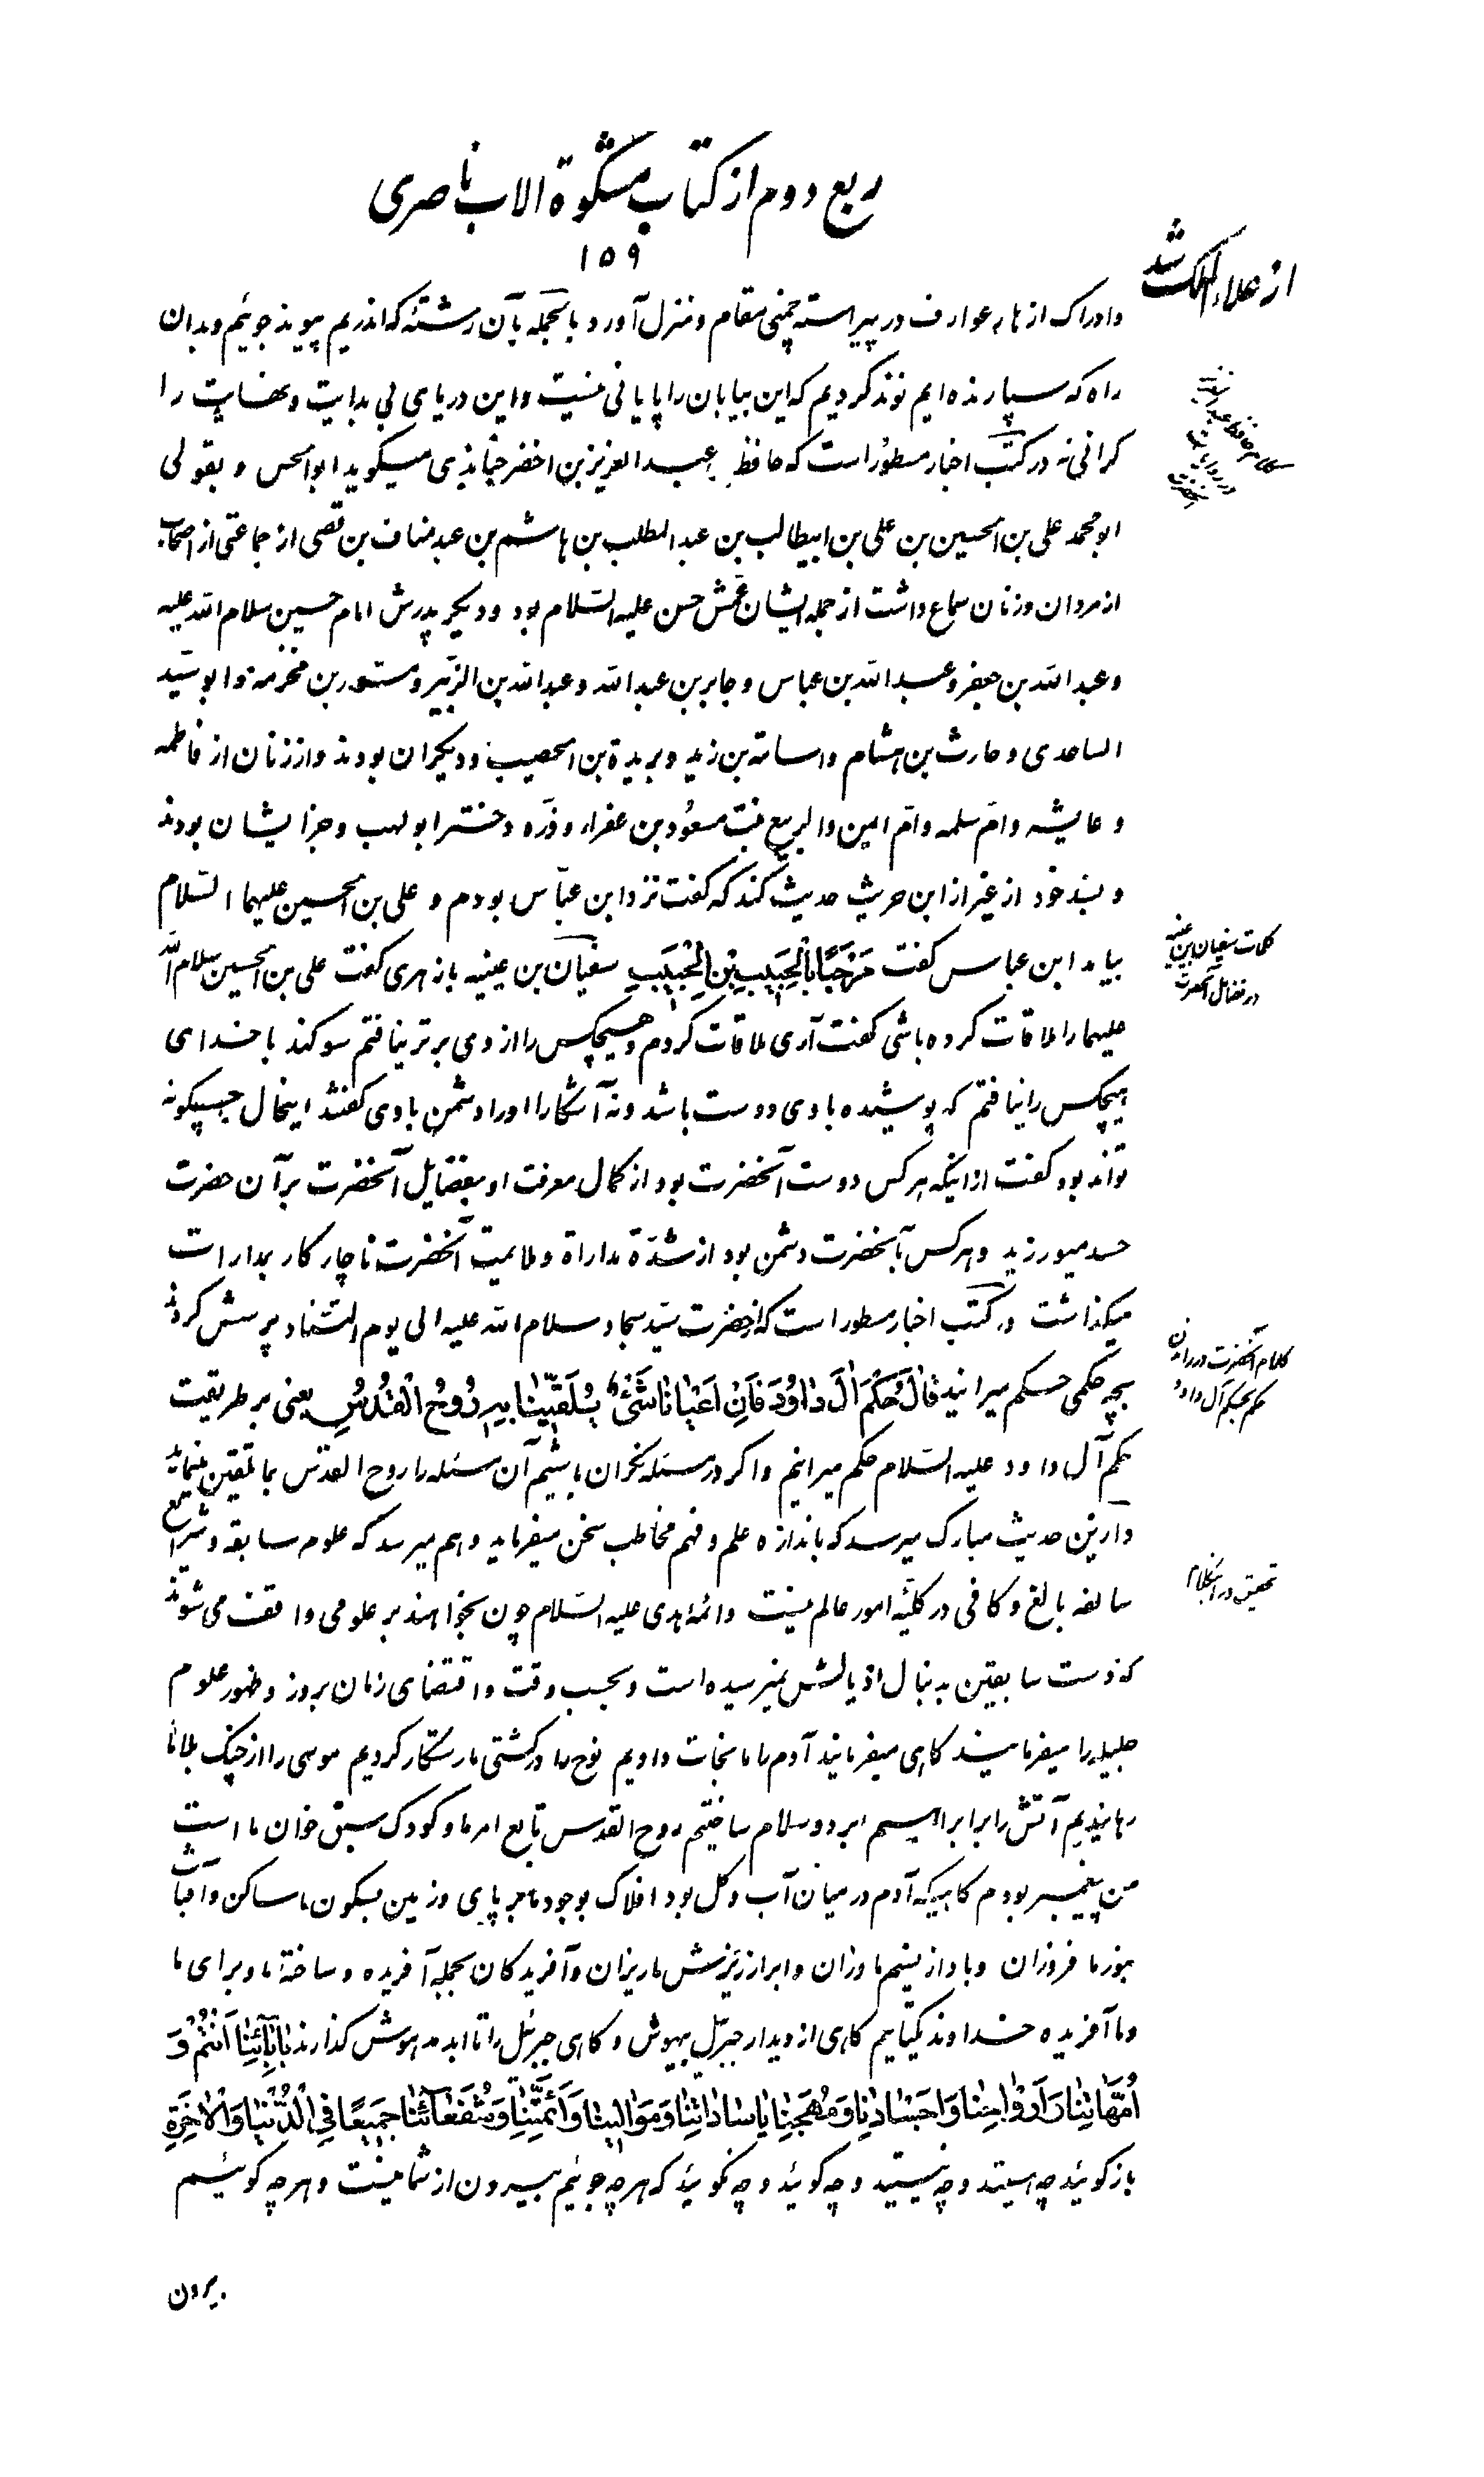 ربع دوم از کتاب مشکوة الادب ناصری
۱۵۹
وادراک ازهار عوارف در پیراسته چمنی مقام و منزل آورد بالجمله بآن رشته که اندریم پیوند جوئیم و بدان
راه که سپارنده‌ایم نوند گردیم که این بیابان را پایانی نیست و این دریای بی بدایت و نهایت را
کرانی نه در کتب اخبار مسطور است که حافظ عبدالعزیز بن اخضر جنابذی میگوید ابوالحسن و بقولی
ابومحمد علی بن الحسین بن علی بن ابیطالب بن عبدالمطلب بن هاشم بن عبدمناف بن قصی از جماعتی از اصحاب
از مردان و زنان سماع داشت از جمله ایشان عمش حسن علیه السلام بود و دیگر پدرش امام حسین سلام الله علیه
و عبدالله بن جعفر و عبدالله بن عباس و جابر بن عبدالله و عبدالله بن الزبیر و مسور بن مخرمه و ابو اسید
الساعدی و حارث بن هشام و اسامة بن زید و بریدة بن الحصیب و دیگران بودند و از زنان از فاطمه
و عایشه و ام سلمه و ام ایمن والربیع بنت مسعود بن عفراء و دره دختر ابولهب و جز ایشان بودند
و بسند خود از غیراز ابن حریث حدیث کند که گفت نزد ابن عباس بودم و علی بن الحسین علیهما السلام
بیامد ابن عباس گفت مَرْحَبًا بِالْحَبیبِ بْنِ الْحَبیبِ سفیان بن عیینه بازهری گفت علی بن الحسین سلام الله
علیهما را ملاقات کرده باشی گفت آری ملاقات کردم و هیچکس را از وی برتر نیافتم سوگند با خدای
هیچکس را نیافتم که پوشیده با وی دوست باشد و نه آشکارا او را دشمن با وی گفتند اینحال چسگونه
تواند بود گفت ازاینکه هر کس دوست آنحضرت بود از کمال معرفت او بفضایل آنحضرت بر آن حضرت
حسد میورزید و هر کس با آنحضرت دشمن بود از شدّة مداراة و ملایمت آنحضرت ناچار کار بمدارات
میگذاشت در کتب اخبار مسطور است که از حضرت سید سجاد سلام الله علیه الی یوم التناد پرسش کردند
بچه حکمی حکم میرانید قالَ حُکْمَ آلِ داوُدَ فَاِنْ اَعْیانا شَیْءٌ یُلَقّینا بِهِ رُوحُ الْقُدُسِ یعنی بر طریقت
حکم آل داود علیه السلام حکم میرانیم و اگر در مسئله نگران باشیم آن مسئله را روح القدس بما تلقین مینماید
و از این حدیث مبارک میرسد که باندازه علم و فهم مخاطب سخن میفرماید و هم میرسد که علوم سابقه و شرایع
سالفه بالغ و کافی در کلیّه امور عالم نیست و ائمه هدی علیه السلام چون بخواهند بر علومی واقف می شوند
که دست سابقین بدنبال اذیالش نمیرسیده است و بحسب وقت و اقتضای زمان بروز و ظهور علوم
جلیله را میفرمایند گاهی میفرمایند آدم را ما نجات دادیم نوح را در کشتی ما رستگار کردیم موسی را از چنگ بلا ما
رهانیدیم آتش را بر ابراهیم ابرد و سلام ساختیم روح القدس تابع امر ما و کودک سبق خوان ما است
من پیغمبر بودم گاهیکه آدم در میان آب و گل بود افلاک بوجود ما بر پای و زمین بسکون ما ساکن و آفتاب
بنور ما فروزان و باد از نسیم ما وزان و ابر از ریزش ما ریزان و آفریدگان بجمله آفریده و ساخته ما و برای ما
و ما آفریده خداوند یکتائیم گاهی از دیدار جبرئیل بیهوش و گاهی جبرئیل را تا ابد مدهوش گذارند بِابائِنا اَنْتُمْ وَ
اُمَّهاتِنا وَ اَرْواحِنا وَ اَجْسادِنا وَ مُهَجِنا یا ساداتِنا وَ مَوالینا وَ اَئِمَّتِنا وَ شُفَعآئَنا جَمیعًا فِی الدُّنْیا وَ الْآخِرَةِ
بازگوئید چه هستید و چه نیستید و چه گوئید و چه نگوئید که هرچه جوئیم بیرون از شما نیست و هرچه گوئیم
بیرون
کلمات سفیان بن عیینه
در فضایل آنحضرت
کلام آنحضرت در راندن
حکم بحکم آل داود
تحقیق در اینکلام